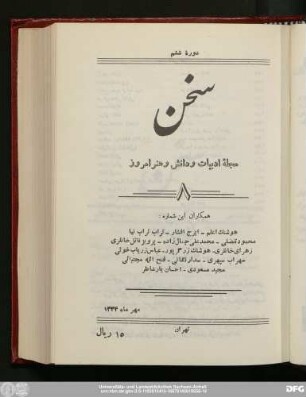 دورهٔ ششم
سخن
مجلهٔ ادبیات و دانش و هنر امروز
۸
همکاران این شماره :
هوشنگ اعلم - ایرج افشار - تراب تراب نیا
محمود تفضلی - محمدعلی جمال‌زاده - پرویز ناتل خانلری
زهرای خانلری - هوشنگ - عباس زریاب خوئی
سهراب سپهری - - فتح الله مجتبائی
مجید مسعودی - احسان یارشاطر
مهر ماه ۱۳۳۴
تهران
۱۵ ریال
Universitäts- und Landesbibliothek Sachsen-Anhalt